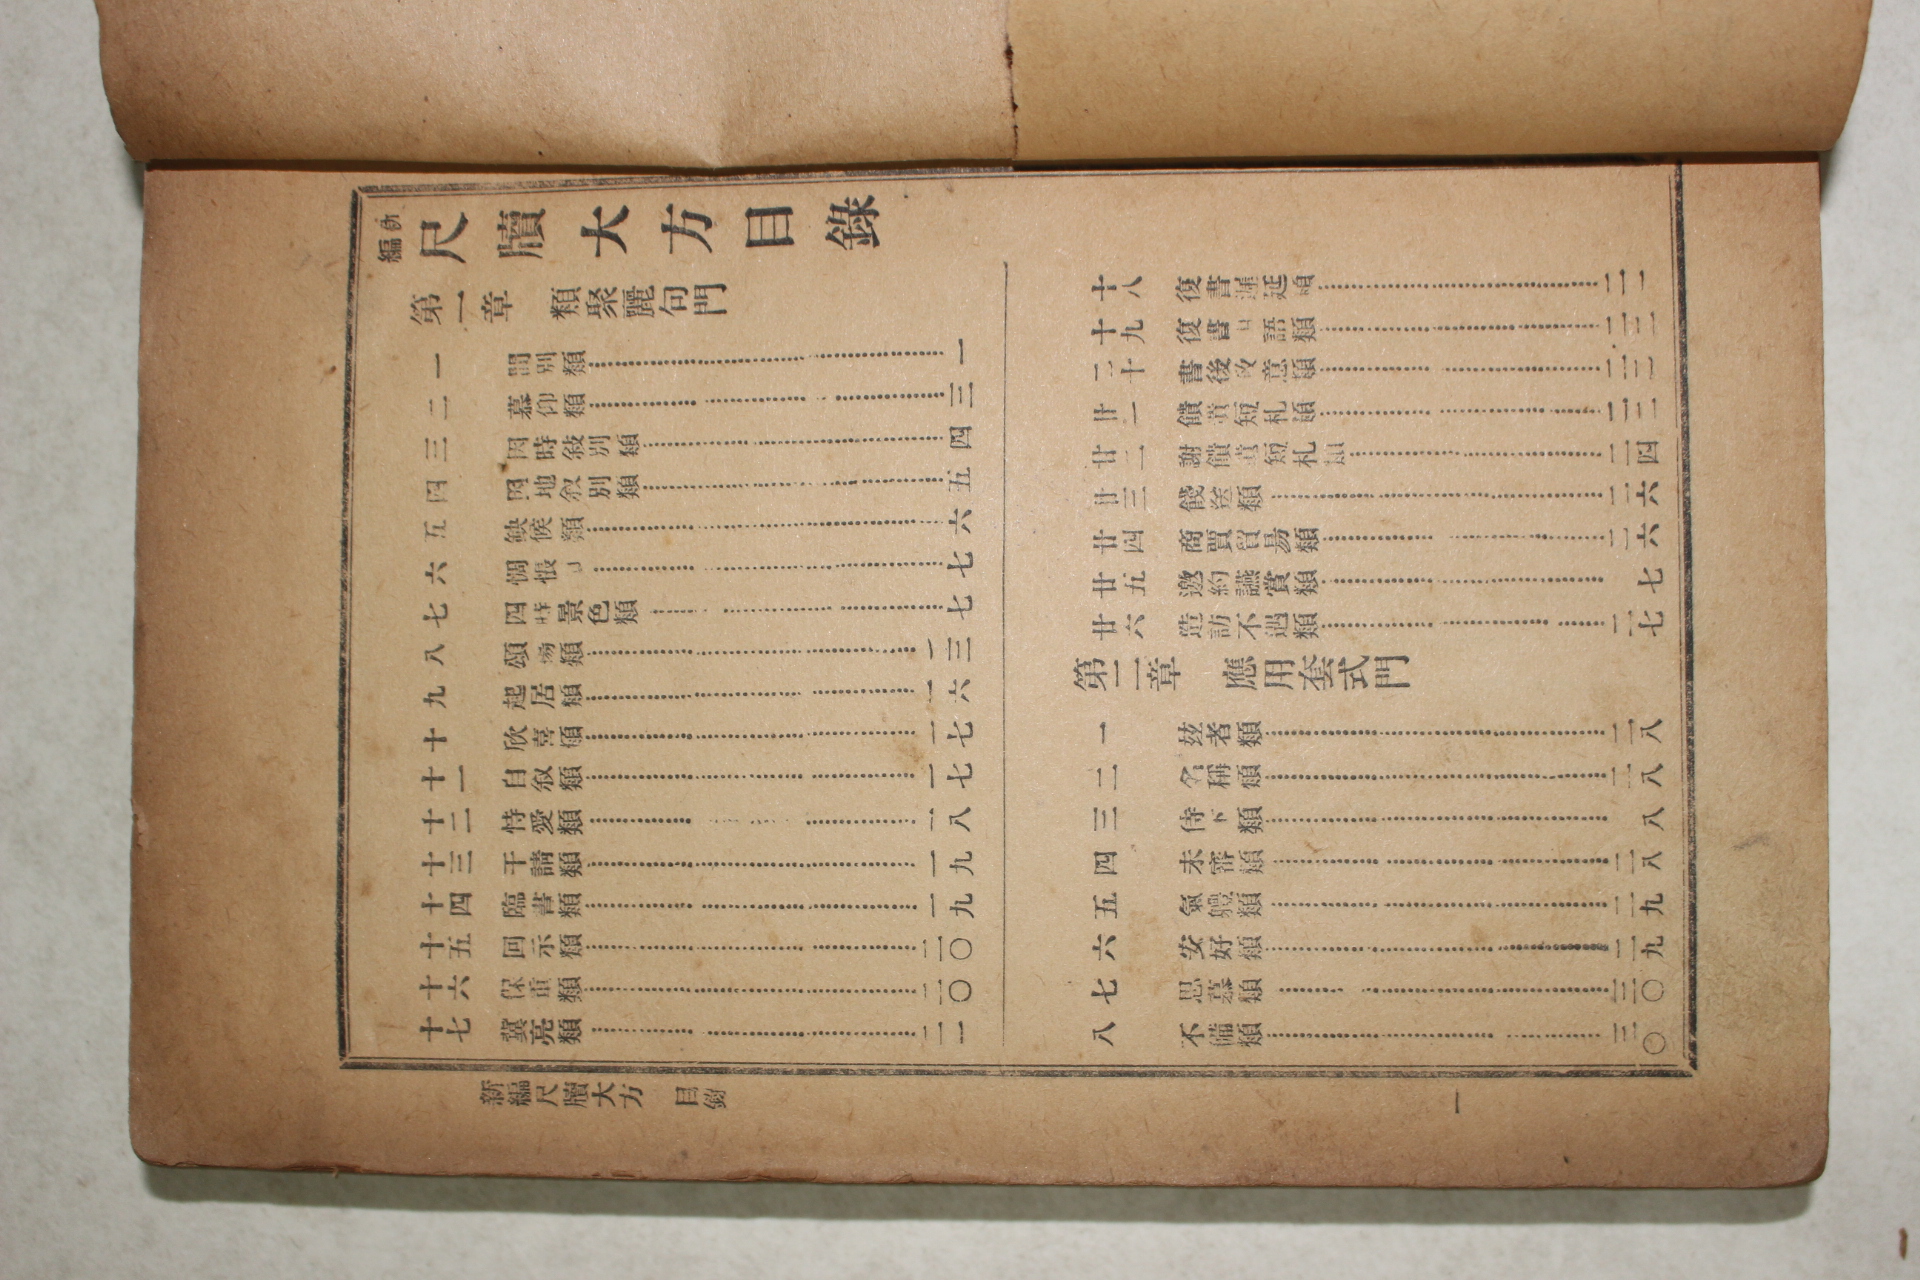 新編尺牘大方目錄
第一章 類聚麗句門
一 間別類 一
二 慕仰類 三
三 因時敍別類 四
四 因地敘別類 五
五 缺候類 六
六 惆悵 七
七 四時景色類 七
八 頌揚類 一三
九 起居類 一六
十 欣喜類 一七
十一 自敘類 一七
十二 恃愛類 一八
十三 干請類 一九
十四 臨書類 一九
十五 回示類 二〇
十六 保重類 二〇
十七 冀亮類 二一
十八 復書遲延類 二一
十九 復書 語類 二二
二十 書後 意類 二二
廿一 饋 短札類 二三
廿二 謝饋 短札類 二四
廿三 餞送類 二六
廿四 商賈貿易類 二六
廿五 邀約讌賞類 七
廿六 造訪不遇類 二七
第二章 應用套式門
一 玆者類 二八
二 名稱類 二八
三 侍下類 八
四 未審類 二八
五 氣體類 二九
六 安好類 二九
七 思慕類 三〇
八 不備類 三〇
新編尺牘大方 目錄
一